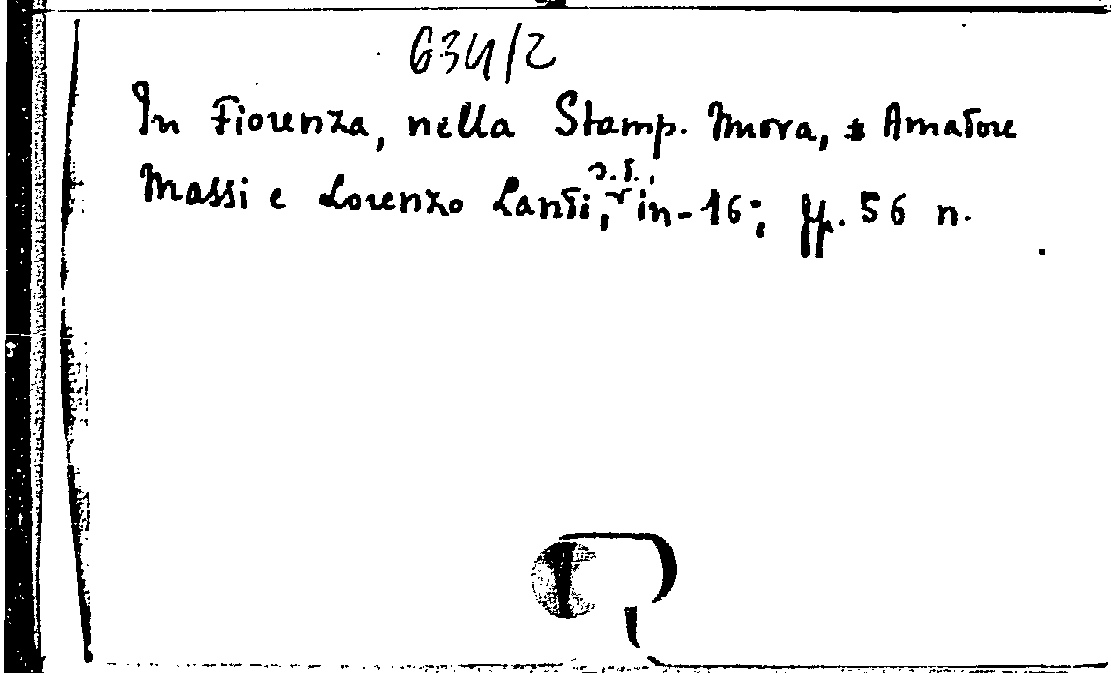 634/2
In Fiorenza, nella Stamp. Nuova, Amatore
Massi e Lorenzo Landi, s.d., in-16°, ff. 56 n.